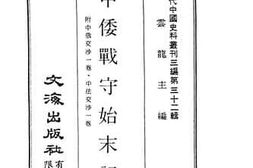 代中國史料叢刊三編第三十二輯
雲龍主編
中倭戰守始末
附中俄交涉一卷·中法交涉一卷
文海出版社
有
限